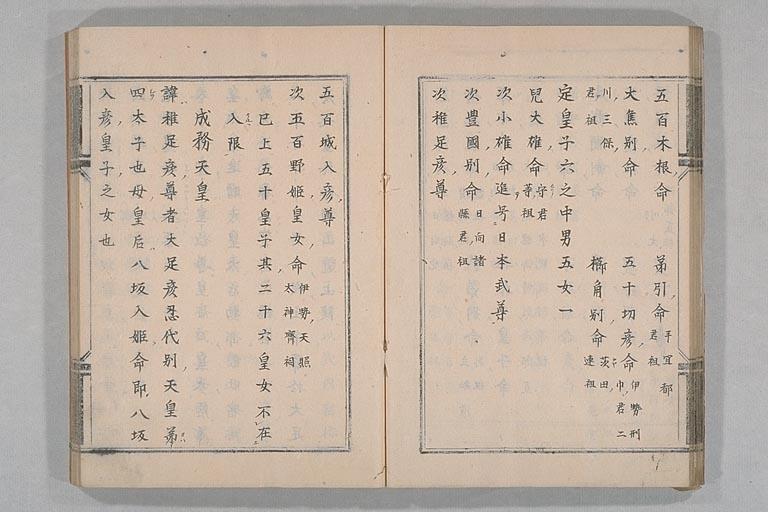 五百木根命　　弟引命 平宜都君祖
大焦別命　　五十切彦命 伊勢刑部君二
川三保君祖　櫛角別命 茨田連祖
定皇子六之中男五女一
兒大碓命 守君等祖
次小碓命進号日本武尊
次豊國別命 日向諸縣君祖
次稚足彦尊
五百城入彦尊
次五百野姫皇女命 伊勢天照太神齊祠
已上五十皇子其二十六皇女不在
入限
成務天皇
諱稚足彦尊者大足彦忍代別天皇弟
四太子也母皇后八坂入姫命即八坂
入彦皇子之女也